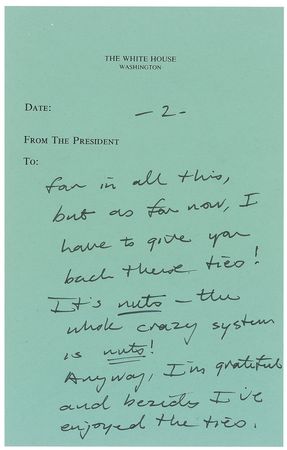 THE WHITE HOUSE
WASHINGTON
DATE:
- 2 -
FROM THE PRESIDENT
TO:
far in all this,
but as for now, I
have to give you
back these ties!
It's nuts - the
whole crazy system
is nuts!
Anyway, I'm grateful
and besides I've
enjoyed the ties.